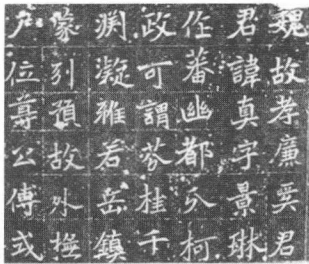 魏故孝廉奚君
君諱真字景琳
作蕃幽都分柯
政可謂芬桂千
淵凝雅若岳鎮
蒙列預故外撫
位尊公傅式